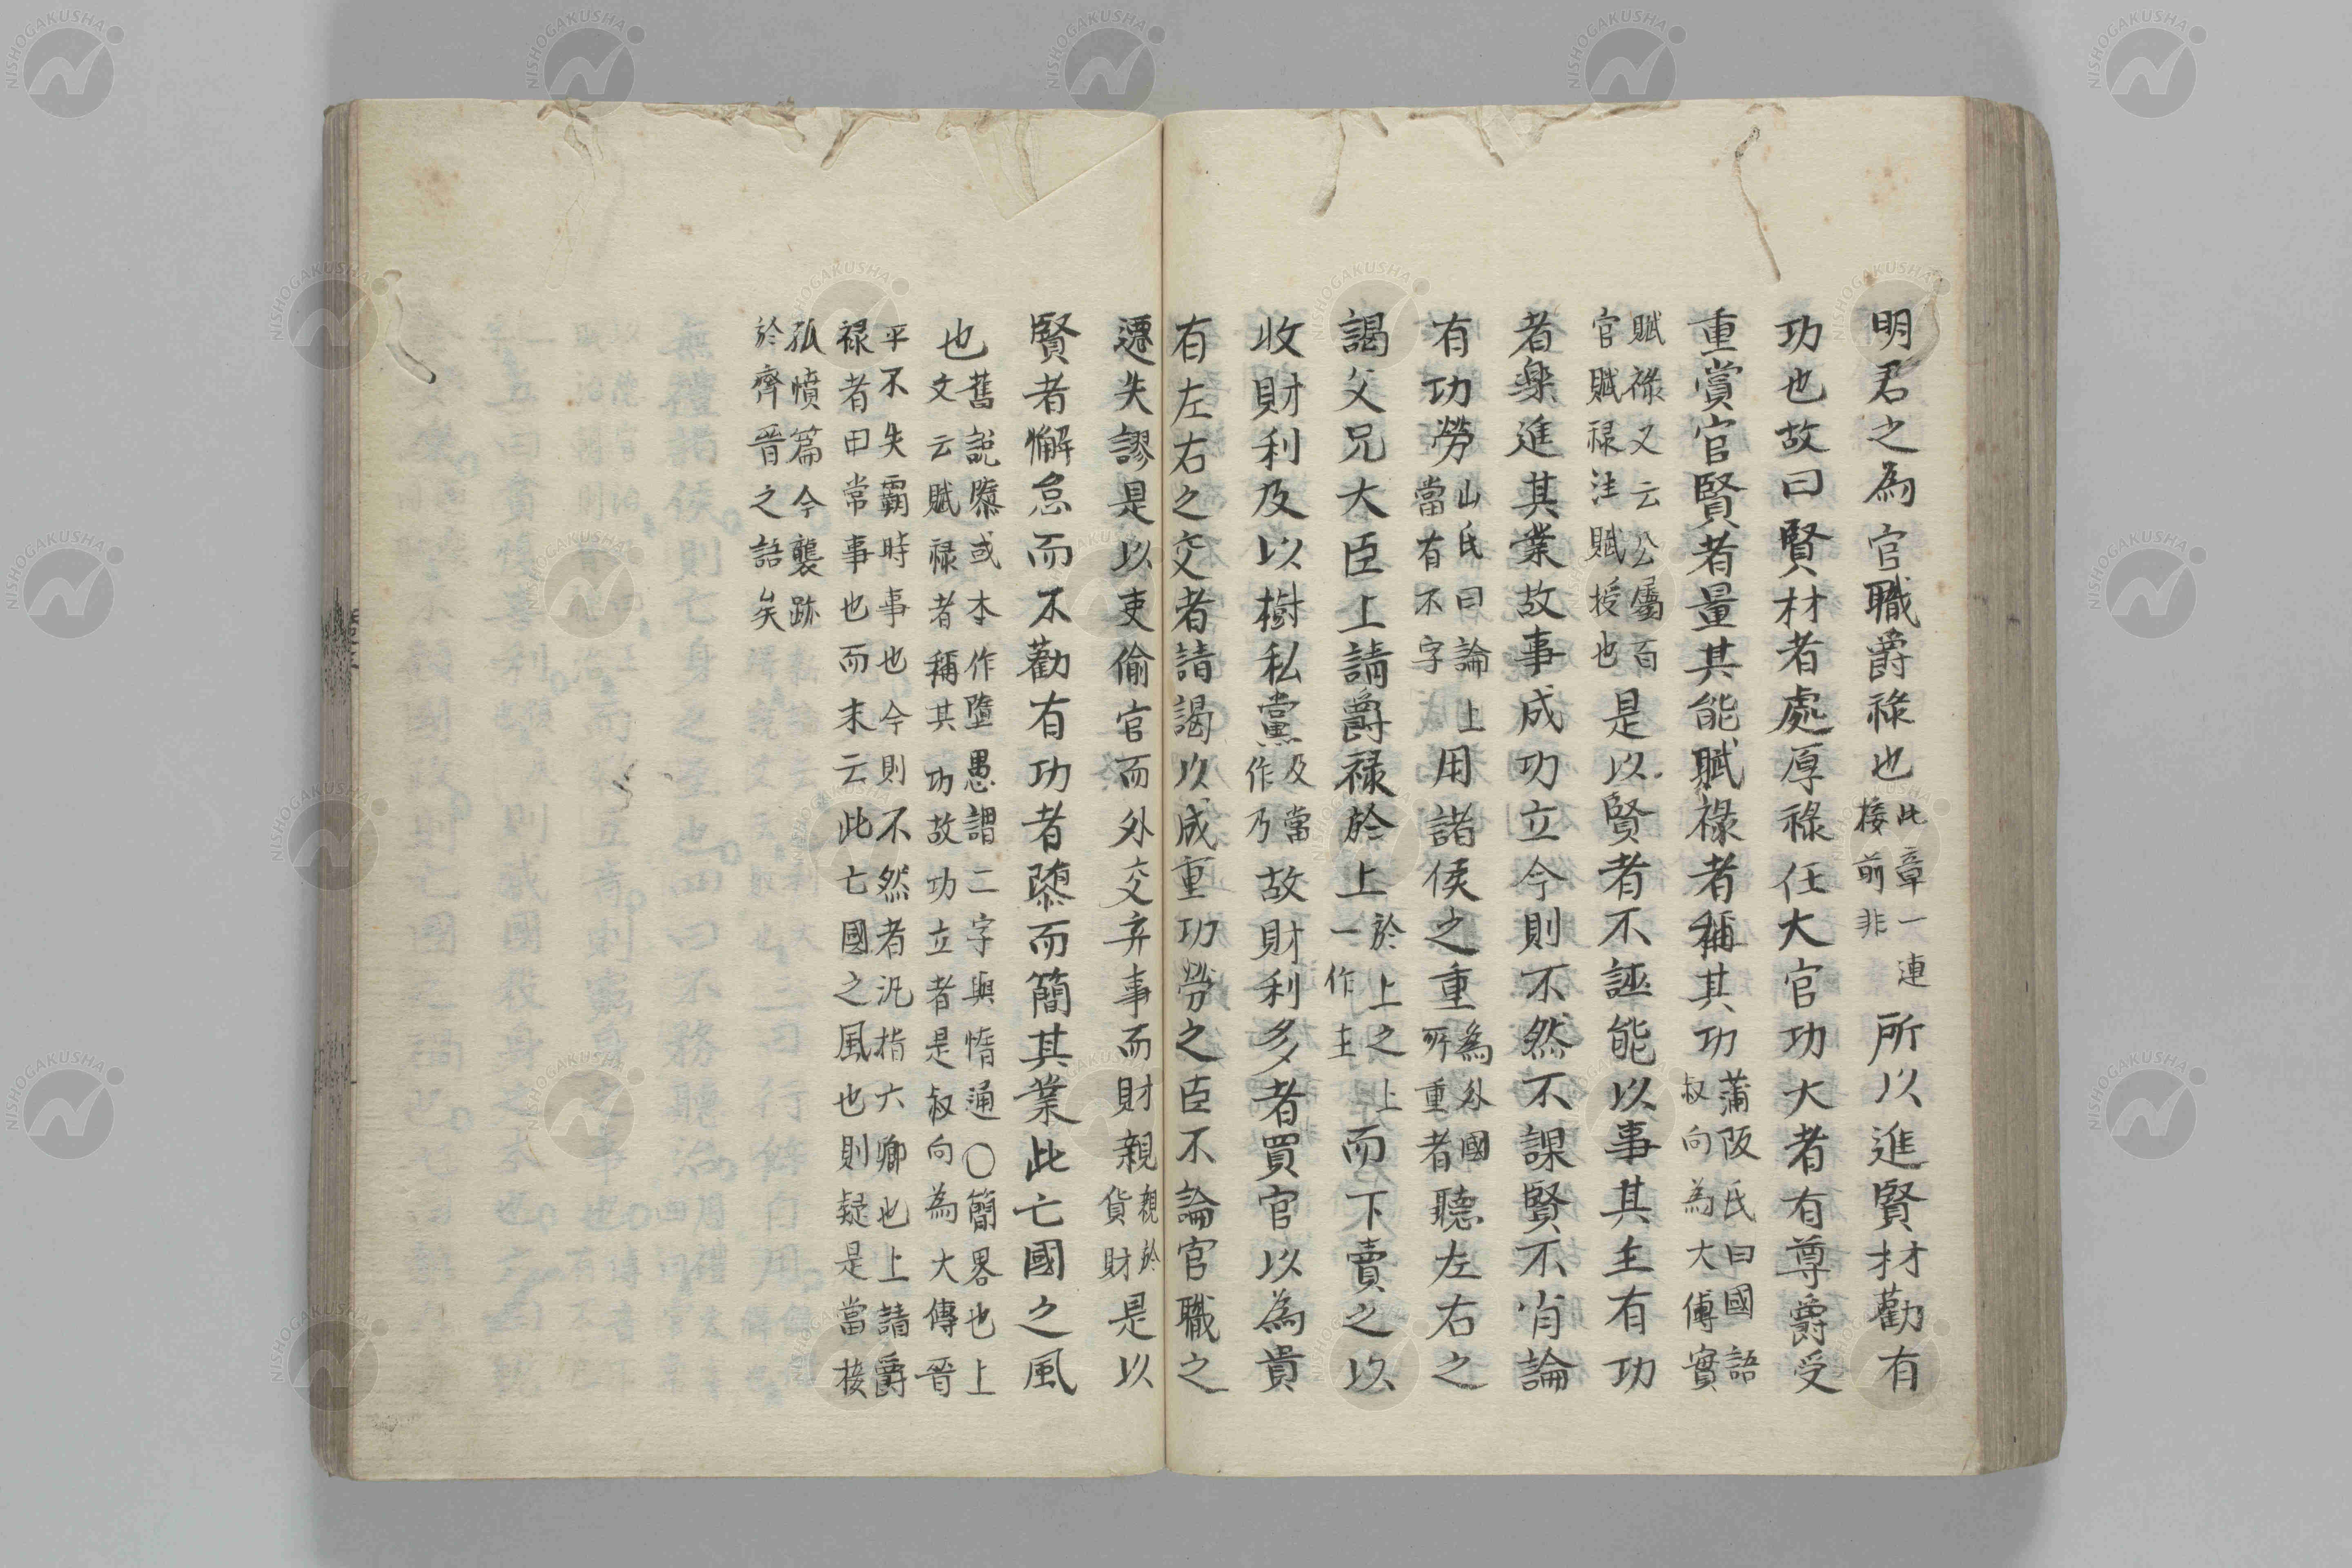 明君之為官職爵祿也此章一連接前非所以進賢材勸有
功也故曰賢材者處厚祿任大官功大者有尊爵受
重賞官賢者量其能賦祿者稱其功蒲阪氏曰國語叔向為大傅實
賦祿又云公屬百官賦祿注賦授也是以賢者不誣能以事其主有功
者樂進其業故事成功立今則不然不課賢不肖論
有功勞山氏曰論上當有不字用諸侯之重為外國所重者聽左右之
謁父兄大臣上請爵祿於上於上之上一作主而下賣之以
收財利及以樹私黨及當作乃故財利多者買官以為貴
有左右之交者請謁以成重功勞之臣不論官職之
遷失謬是以吏偷官而外交弃事而財親親於貨財是以
賢者懈怠而不勸有功者隳而簡其業此亡國之風
也舊說隳或本作墮愚謂二字與惰通〇簡畧也上文云賦祿者稱其功故功立者是叔向為大傅晉
平不失霸時事也今則不然者汎指六卿也上請爵祿者田常事也而末云此亡國之風也則疑是當接
孤憤篇今襲跡於齊晉之語矣
NISHOGAKUSHA